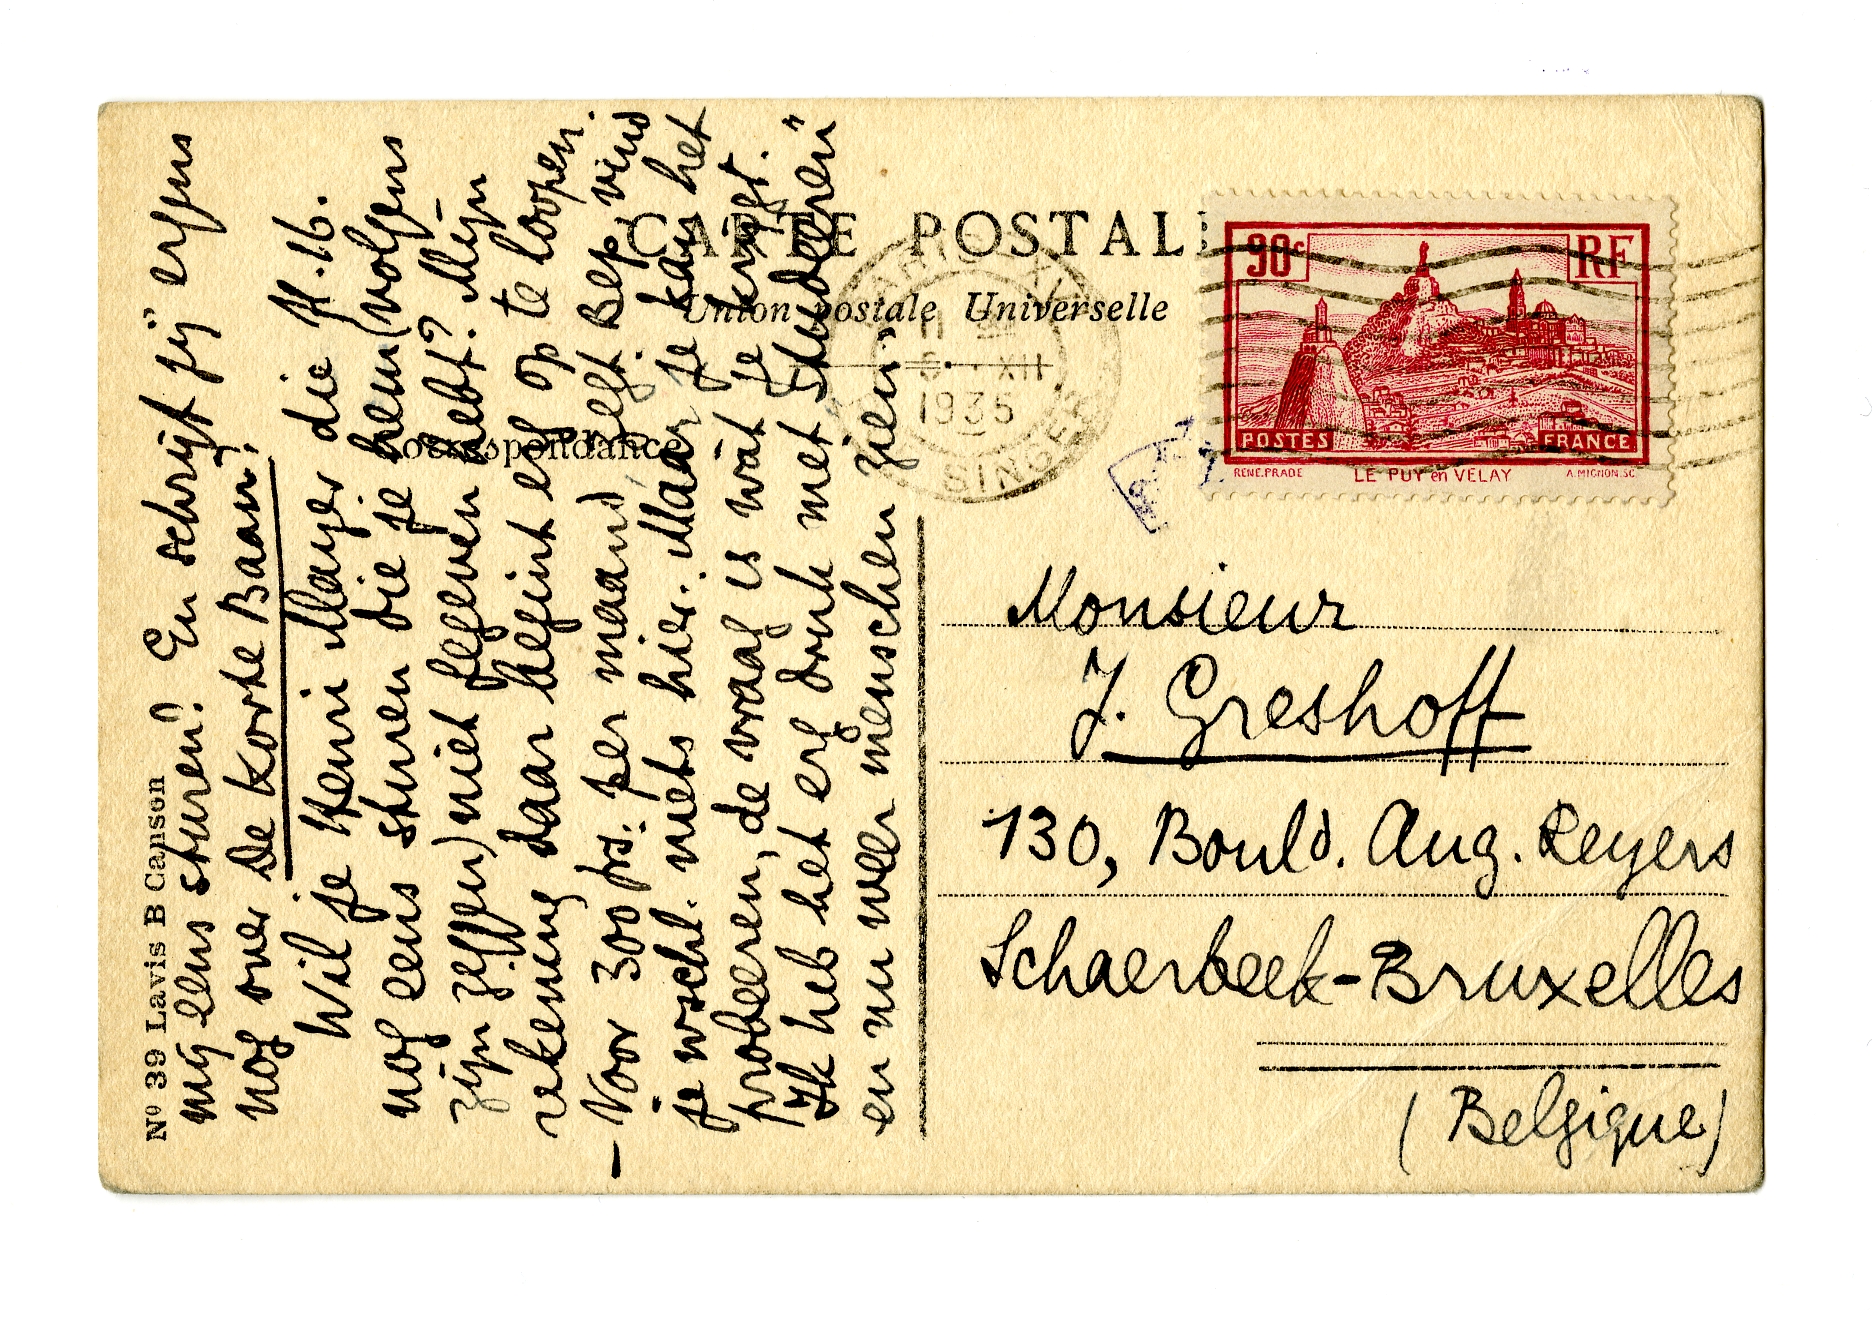 CARTE POSTALE
Union postale Universelle
Correspondance
Nº 39 Lavis B Canson
mij eens sturen? En schrijf jij ergens
nog over De Korte Baan?
Wil je Henri Mayer die H.16.
nog eens sturen die je hem (volgens
zijn zeggen) niet gegeven hebt? Mijn
rekening daar begint erg op te loopen.
– Voor 300 frs. per maand Bep vind
je wschl. niets hier. Maar je kan het
probeeren, de vraag is wat je krijgt.
Ik heb het erg druk met "studeeren"
en nu weer "menschen zien"
90c
RF
POSTES
FRANCE
RENE.PRADE
LE PUY en VELAY
A.MIGNON.SC
PARIS XVI
11
6 · XII
1935
SINGER
Monsieur
J. Greshoff
130, Bould. Aug. Reyers
Schaerbeek-Bruxelles
(Belgique)